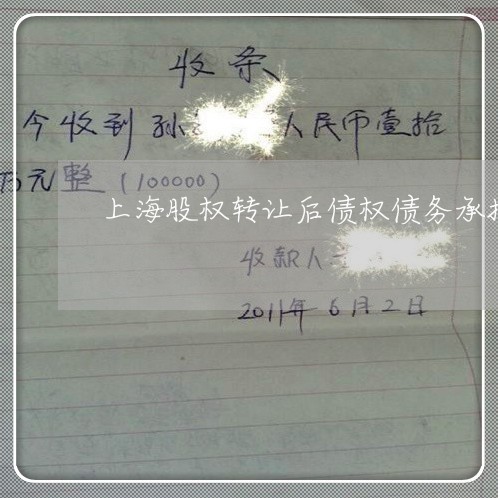 收条
今收到孙 人民币壹拾
万元整（100000）
上海股权转让后债权债务承
收款人
2011年6月2日